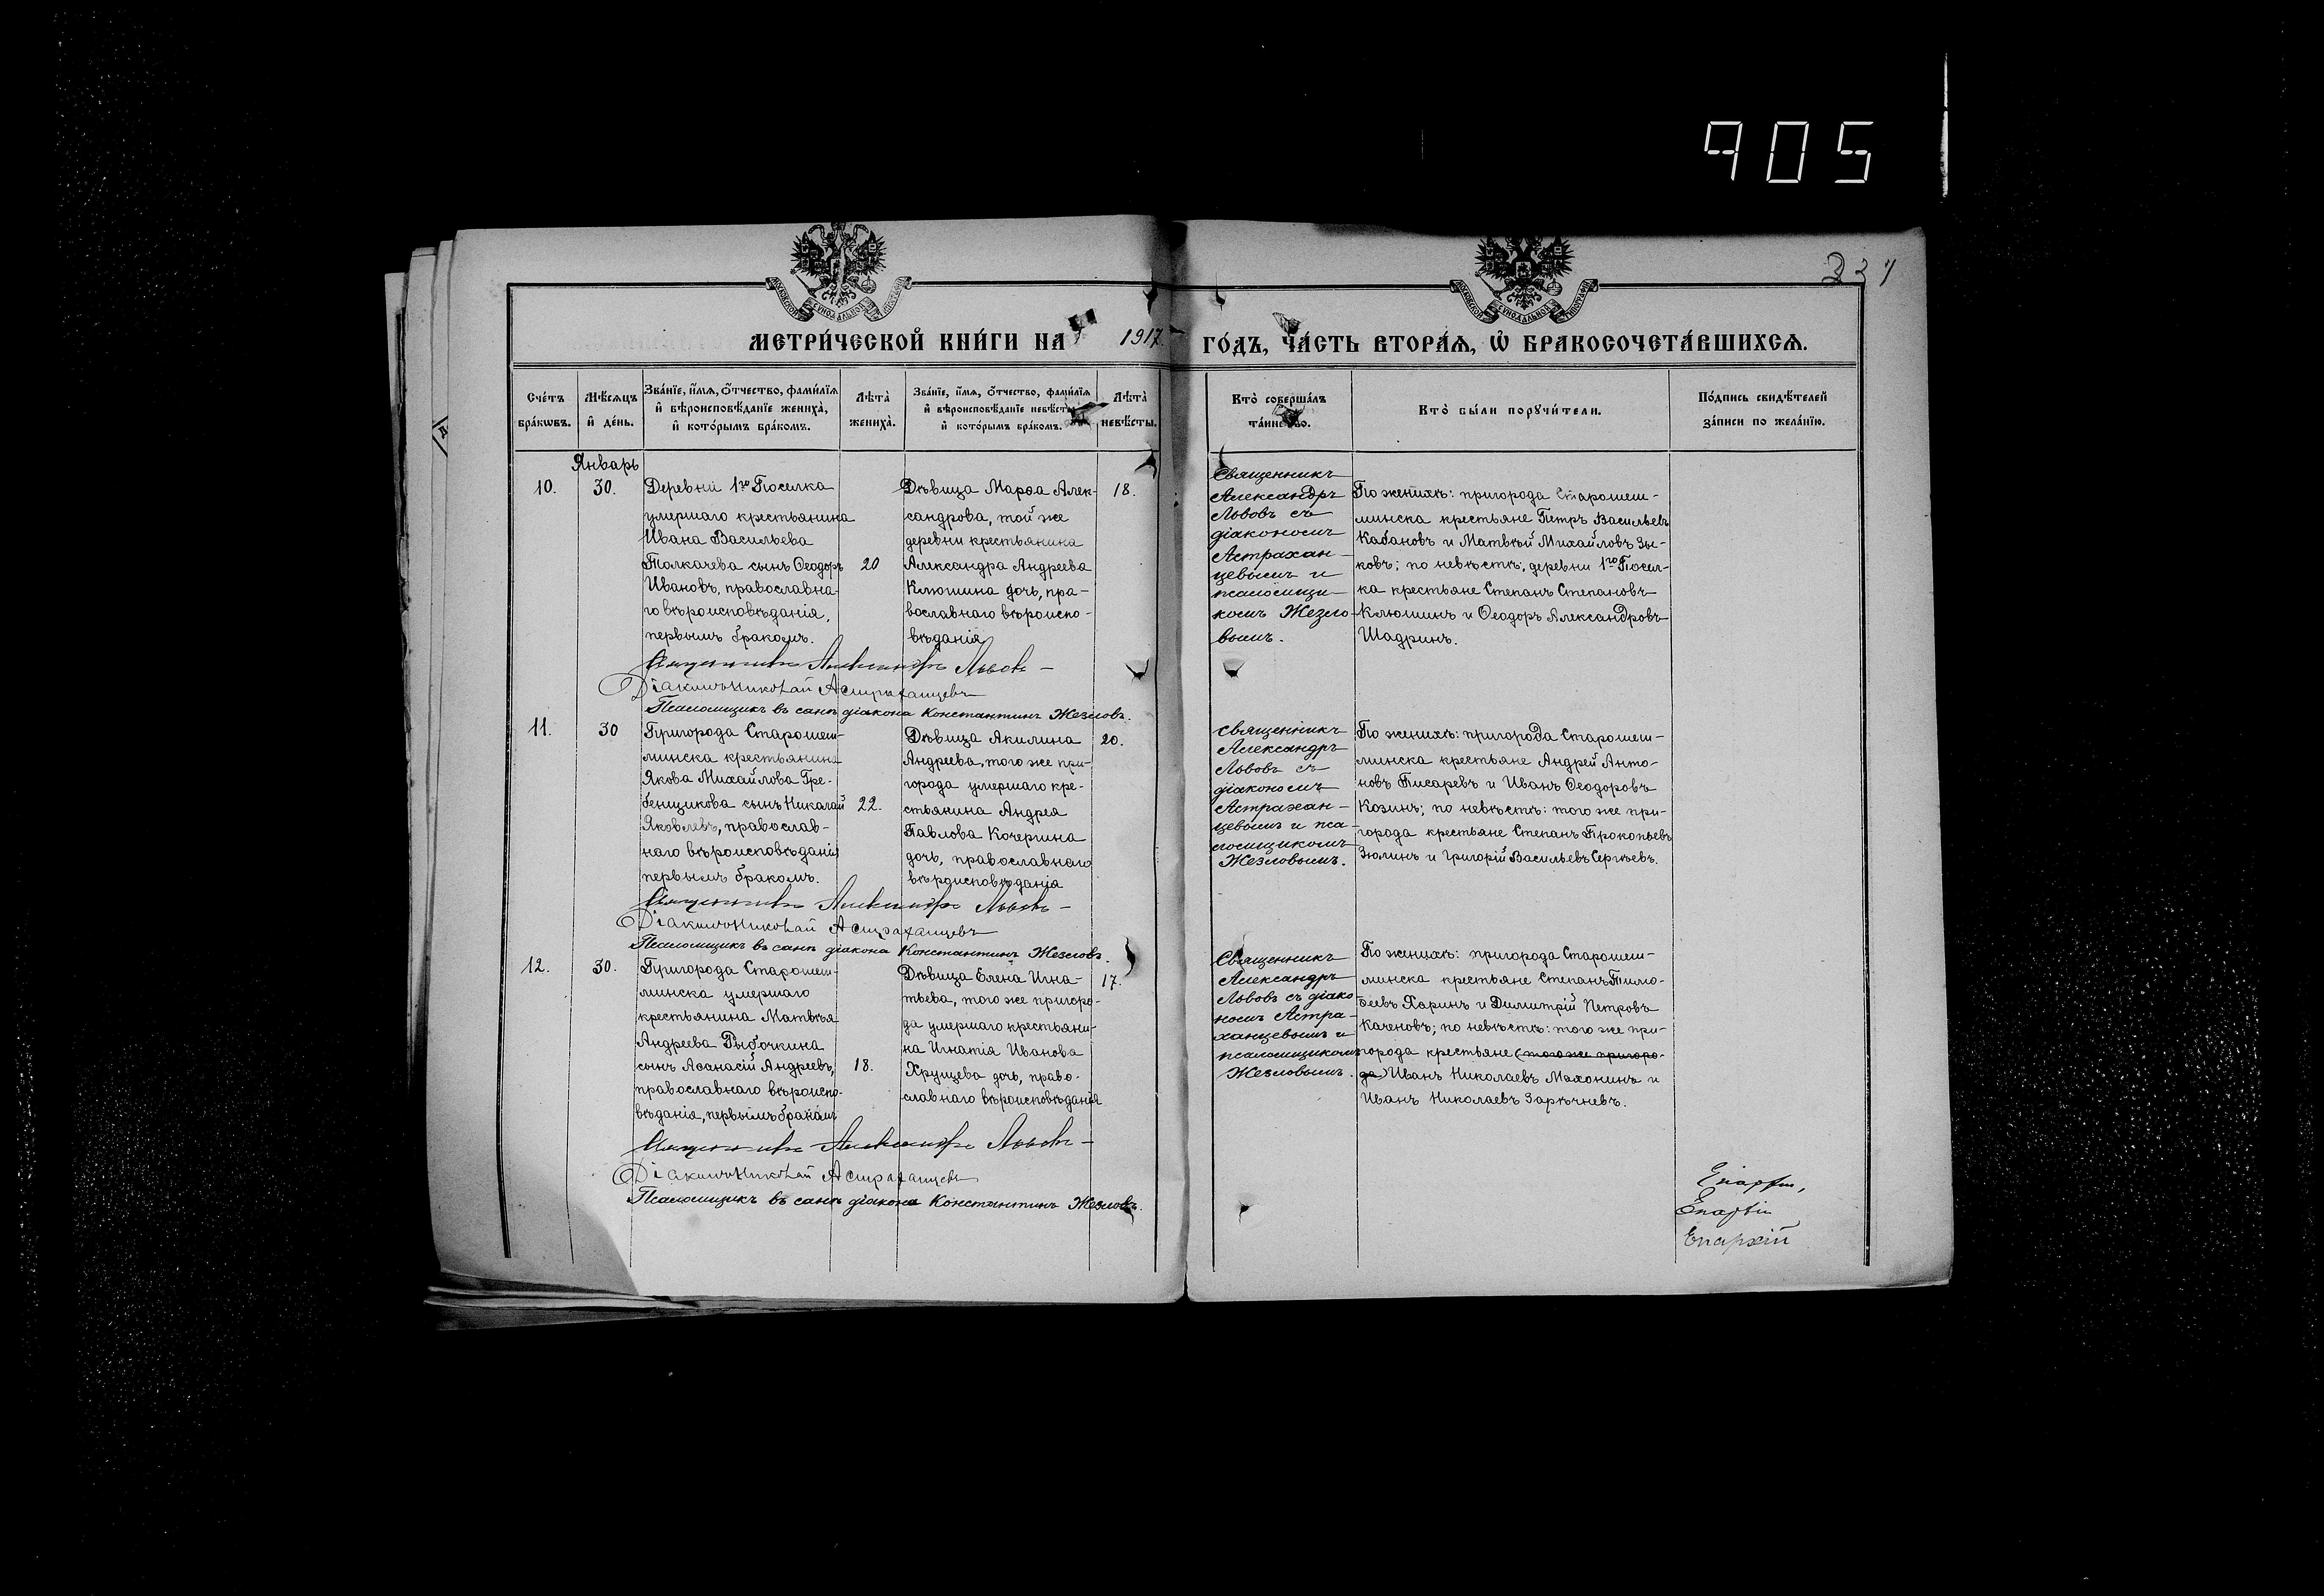 905
237
МЕТРИ́ЧЕСКОЙ КНИ́ГИ НА 1917 ГО́ДЪ, ЧА́СТЬ ВТОРА́Я, Ѡ҆ БРАКОСОЧЕТА́ВШИХСЯ.
Сче́тъ бра́кѡвъ.
Мѣ́сяцъ и҆ де́нь.
Зва́нїе, и҆́мя, ѻ҆́тчество, фами́лїя
и҆ вѣроисповѣ́данїе жениха̀,
и҆ кото́рымъ бра́комъ.
Лѣта̀ жениха̀.
Зва́нїе, и҆́мя, ѻ҆́тчество, фами́лїя
и҆ вѣроисповѣ́данїе невѣ́сты
и҆ кото́рымъ бра́комъ.
Лѣта̀ невѣ́сты.
Кто̀ соверша́лъ
та́инство.
Кто̀ бы́ли порꙋчи́тели.
По́дпись свидѣ́телей
за́писи по жела́нїю.
Январь
10.
30.
Деревни 1го Поселка
умершаго крестьянина
Ивана Васильева
Толкачева сынъ Ѳеодоръ
Ивановъ, православна-
го вѣроисповѣданія,
первымъ бракомъ.
20
Дѣвица Марѳа Алек-
сандрова, той же
деревни крестьянина
Александра Андреева
Клюшина дочь, пра-
вославнаго вѣроиспо-
вѣданія
18.
Священникъ
Александръ
Львовъ съ
діакономъ
Астрахан-
цевымъ и
псаломщи-
комъ Жезло-
вымъ.
По женихѣ: пригорода Старошеш-
минска крестьяне Петръ Васильевъ
Кабановъ и Матвѣй Михайловъ Зы-
ковъ; по невѣстѣ, деревни 1го Посел-
ка крестьяне Степанъ Степановъ
Клюшинъ и Ѳеодоръ Александровъ
Шадринъ.
Священникъ Александръ Львовъ
Діаконъ Николай Астраханцевъ
Псаломщикъ въ санѣ діакона Константинъ Жезловъ.
11.
30
Пригорода Старошеш-
минска крестьянина
Якова Михайлова Гре-
бенщикова сынъ Николай
Яковлевъ, православ-
наго вѣроисповѣданія
первымъ бракомъ.
22.
Дѣвица Акилина
Андреева, того же при-
города умершаго кре-
стьянина Андрея
Павлова Кочергина
дочь, православнаго
вѣроисповѣданія
20.
Священникъ
Александръ
Львовъ съ
діакономъ
Астрахан-
цевымъ и пса-
ломщикомъ
Жезловымъ.
По женихѣ: пригорода Старошеш-
минска крестьяне Андрей Анто-
новъ Писаревъ и Иванъ Ѳеодоровъ
Козинъ; по невѣстѣ: того же при-
города крестьяне Степанъ Прокопьевъ
Зюлинъ и Григорій Васильевъ Сергѣевъ.
Священникъ Александръ Львовъ
Діаконъ Николай Астраханцевъ
Псаломщикъ въ санѣ діакона Константинъ Жезловъ.
12.
30.
Пригорода Старошеш-
минска умершаго
крестьянина Матвѣя
Андреева Рыбочкина
сынъ Аѳанасій Андреевъ,
православнаго вѣроиспо-
вѣданія, первымъ бракомъ
18.
Дѣвица Елена Игна-
тьева, того же пригоро-
да умершаго крестьяни-
на Игнатія Иванова
Хрущева дочь, право-
славнаго вѣроисповѣданія
17.
Священникъ
Александръ
Львовъ съ діако-
номъ Астра-
ханцевымъ и
псаломщикомъ
Жезловымъ.
По женихѣ: пригорода Старошеш-
минска крестьяне Степанъ Тимо-
ѳеевъ Харинъ и Димитрій Петровъ
Каченовъ; по невѣстѣ: того же при-
города крестьяне (того же пригоро-
да) Иванъ Николаевъ Махонинъ и
Иванъ Николаевъ Зарѣчневъ.
Священникъ Александръ Львовъ
Діаконъ Николай Астраханцевъ
Псаломщикъ въ санѣ діакона Константинъ Жезловъ.
Епархій